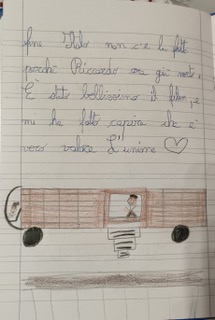 fine Italo non c'e la fatt
perché Riccardo era già morto.
È stato bellissimo il film, e
mi ha fatto capire che è
vero valore L'unione ♡